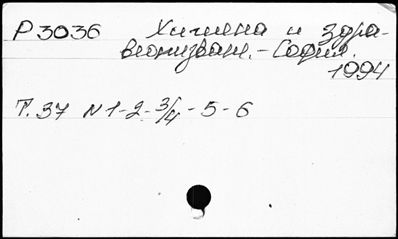 Р3036
Хигиена и здра-
веопазване.-София.
1994
Т.37 N 1-2-3/4-5-6